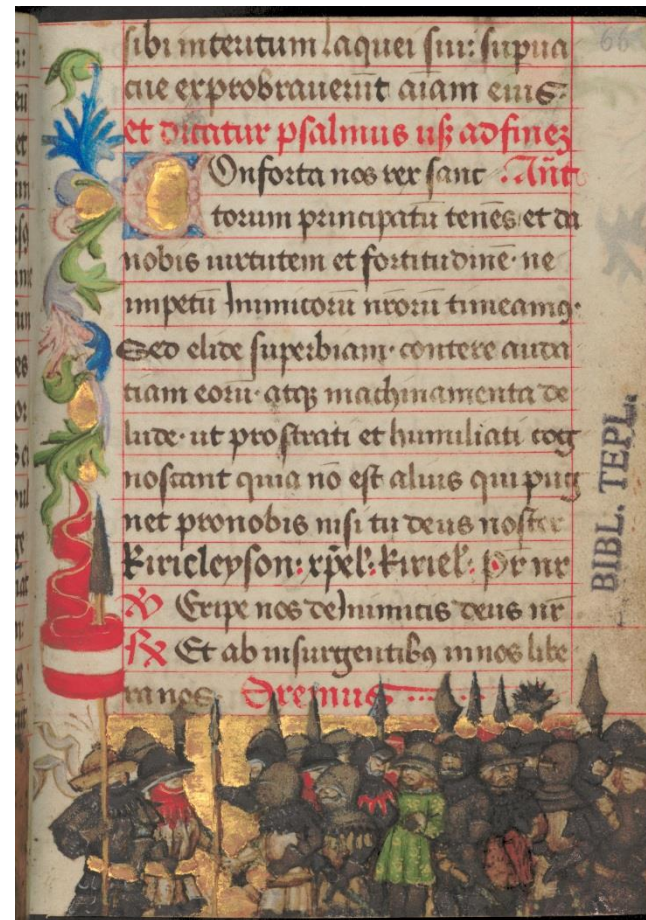 66
sibi interitum laquei sui: supua
cue exprobrauerūt aīam eius:
et dicatur psalmus usꝫ ad finez
Conforta nos rex sanc Añt
torum principatū tenēs et da
nobis uirtutem et fortitudinē· ne
impetū inimicorū nr̄orū timeamꝯ·
Sed elide superbiam· contere auda
tiam eorū· atqꝫ machinamenta de
lude· ut prostrati et humiliati cog
noscant quia nō est alius qui pug
net pronobis nisi tu deus noster
Kirieleyson: xp̄el: Kiriel: Pr nr
℣ Eripe nos de inimicis deus nr
℟ Et ab insurgentibꝯ in nos libe
ra nos Oremus
BIBL. TEPL.